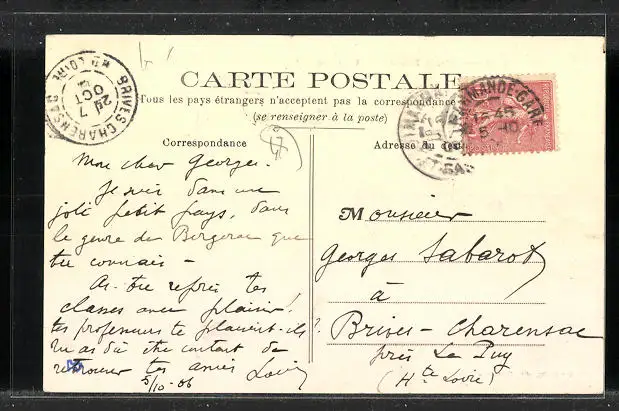 CARTE POSTALE
Tous les pays étrangers n'acceptent pas la correspondance
(se renseigner à la poste)
Correspondance
Adresse du dest
Mon cher Georges.
Je suis dans un
joli petit pays, dans
le genre de Bergerac que
tu connais –
As-tu repris tes
classes avec plaisir!
tes professeurs te plaisent-ils?
Tu as dû être content de
retrouver tes amis
5/10-06
Monsieur
Georges Sabarot
à
Brives-Charensac
près Le Puy
(Hte Loire)
BRIVES CHARENSAC
Hte LOIRE
7
24
OCT
MANDE-GARE
5 - 10